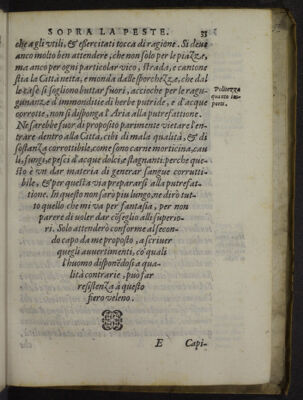 SOPRA LA PESTE. 33
che agli vtili, & esercitati tocca di ragione. Si deue
anco molto ben attendere, che non solo per le piazze,
ma anco per ogni particolar vico, strada, e cantone
stia la Città netta, e monda dalle sporchezze, che dal
le case si sogliono buttar fuori, accioche per le ragu-
nanze d'immonditie di herbe putride, e d'acque
corrotte, non si disponga l'Aria alla putrefattione.
Politezza
quanto im-
porti.
Ne sarebbe fuor di proposito parimente vietare l'en-
trare dentro alla Città, cibi di mala qualità, & di
sostanza corrottibile, come sono carne morticina, cau
li, fungi, e pesci d'acque dolci, e stagnanti: perche que-
sto è vn dar materia di generar sangue corrutti-
bile, & per quella via prepararsi alla putrefat-
tione. In questo non sarò piu lungo, ne dirò tut-
to quello che mi va per fantasia, per non
parere di voler dar cõseglio alli superio-
ri. Solo attenderò conforme al secon-
do capo da me proposto, a scriuer
quegli auuertimenti, cõ quali
l'huomo disponẽdosi a qua-
lità contrarie, può far
resistenza à questo
fiero veleno.
E Capi-